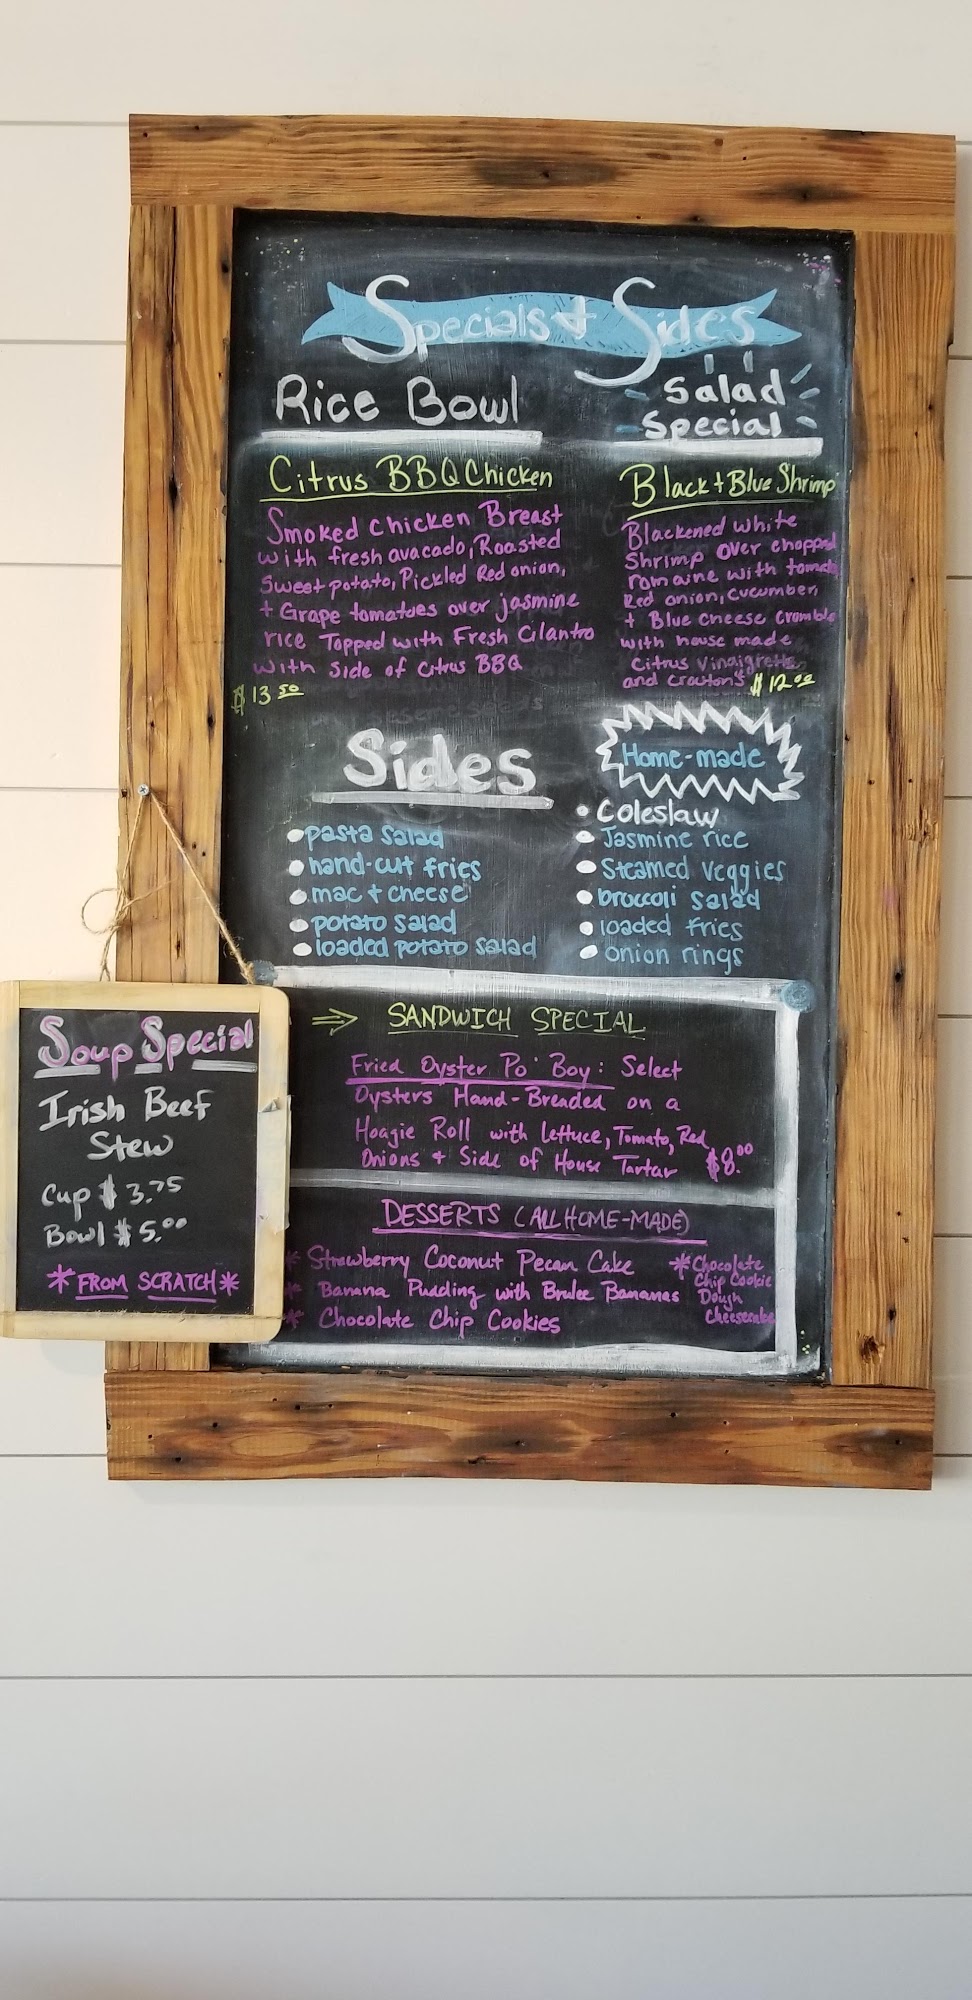 Specials + Sides
Rice Bowl
Citrus BBQ Chicken
Smoked Chicken Breast
with fresh avacado, Roasted
Sweet potato, Pickled Red onion,
+ Grape tomatoes over jasmine
rice Topped with Fresh Cilantro
with side of Citrus BBQ
$13.50
Salad
Special
Black + Blue Shrimp
Blackened white
Shrimp over chopped
romaine with tomato
Red onion, cucumber,
+ Blue cheese crumble
with house made
Citrus Vinaigrette
and crouton's $12.00
Sides
Home-made
• pasta salad
• hand-cut fries
• mac + cheese
• potato salad
• loaded potato salad
• Coleslaw
• Jasmine rice
• Steamed veggies
• broccoli salad
• loaded fries
• onion rings
⇒ SANDWICH SPECIAL
Fried Oyster Po' Boy: Select
Oysters Hand-Breaded on a
Hoagie Roll with lettuce, Tomato, Red
Onions + Side of House Tartar $8.00
DESSERTS (ALL HOME-MADE)
* Strawberry Coconut Pecan Cake
* Banana Pudding with Brulee Bananas
* Chocolate Chip Cookies
* Chocolate
Chip Cookie
Dough
Cheesecake
Soup Special
Irish Beef
Stew
Cup $3.75
Bowl $5.00
* FROM SCRATCH *